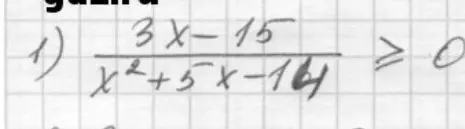 1) (3x-15)/(x²+5x-14) ≥ 0